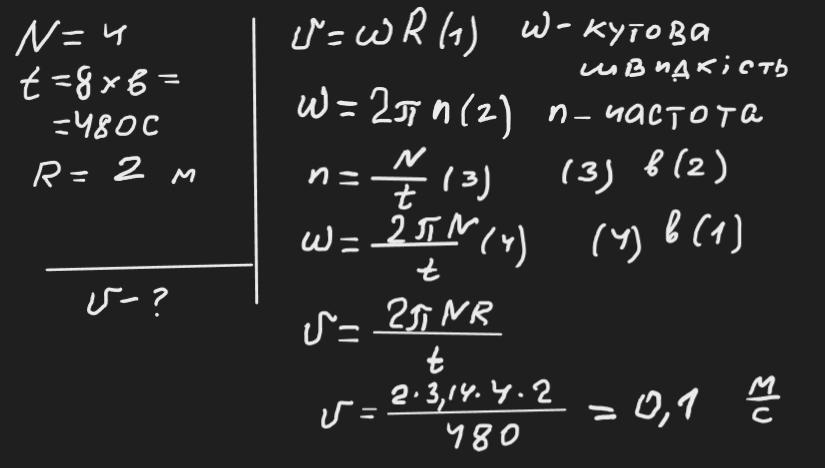 N = 4
t = 8 хв =
= 480 с
R = 2 м
υ - ?
υ = ωR (1) ω - кутова
швидкість
ω = 2πn (2) n - частота
n = N/t (3) (3) в (2)
ω = 2πN/t (4) (4) в (1)
υ = 2πNR/t
υ = 2·3,14·4·2/480 = 0,1 м/с